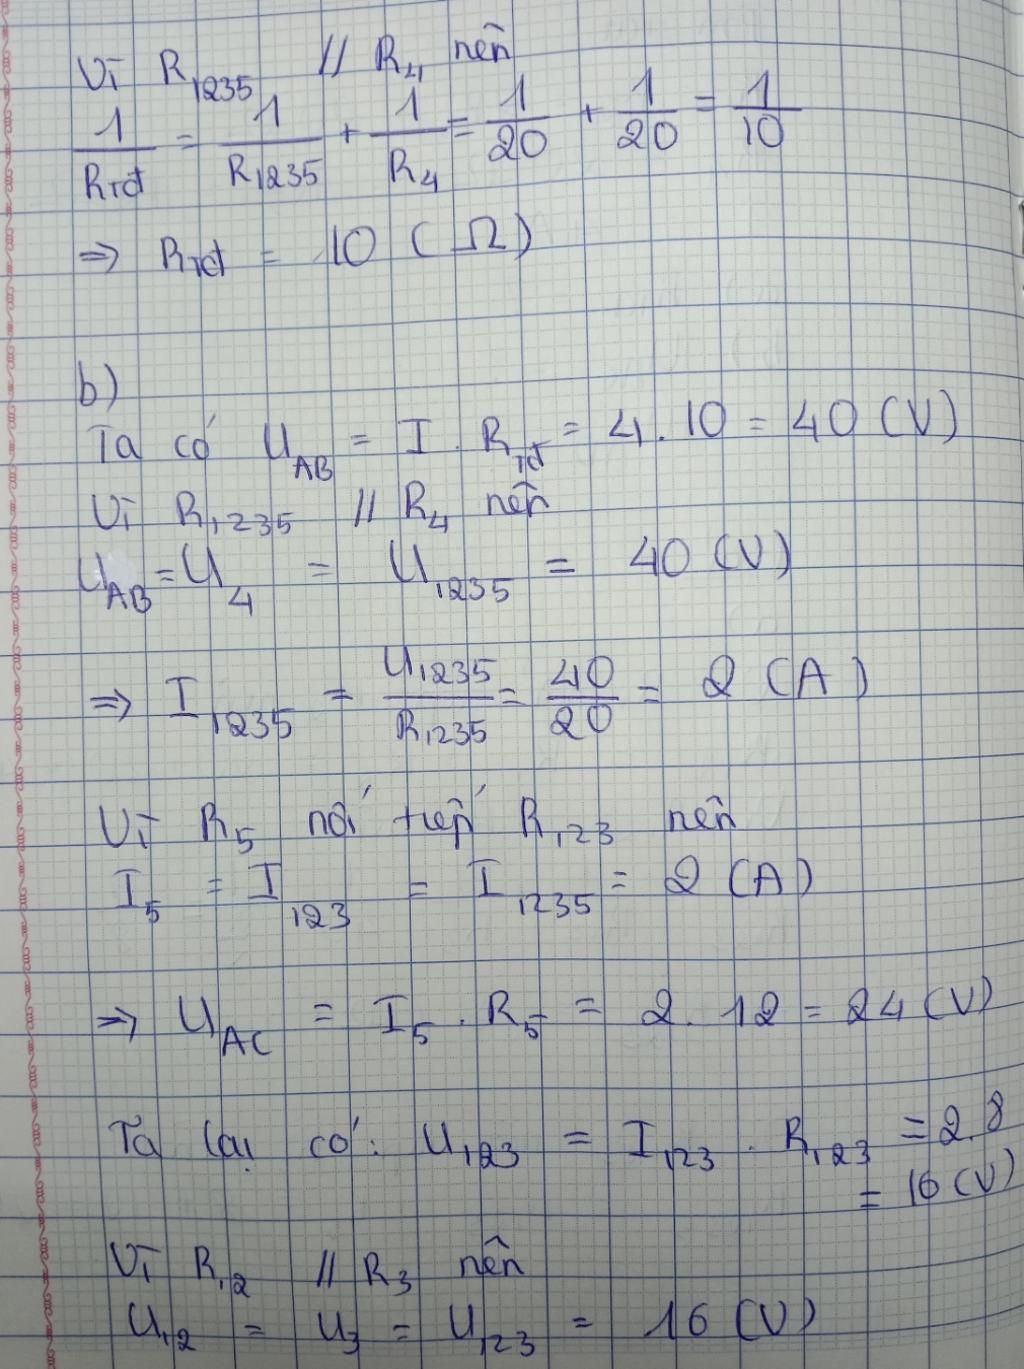 Vì R1235 // R4 nên
1/Rtđ = 1/R1235 + 1/R4 = 1/20 + 1/20 = 1/10
=> Rtđ = 10 (Ω)
b)
Ta có UAB = I . Rtđ = 4 . 10 = 40 (V)
Vì R1235 // R4 nên
UAB = U4 = U1235 = 40 (V)
=> I1235 = U1235/R1235 = 40/20 = 2 (A)
Vì R5 nối tiếp R123 nên
I5 = I123 = I1235 = 2 (A)
=> UAC = I5 . R5 = 2 . 12 = 24 (V)
Ta lại có: U123 = I123 . R123 = 2.8
= 16 (V)
Vì R12 // R3 nên
U12 = U3 = U123 = 16 (V)